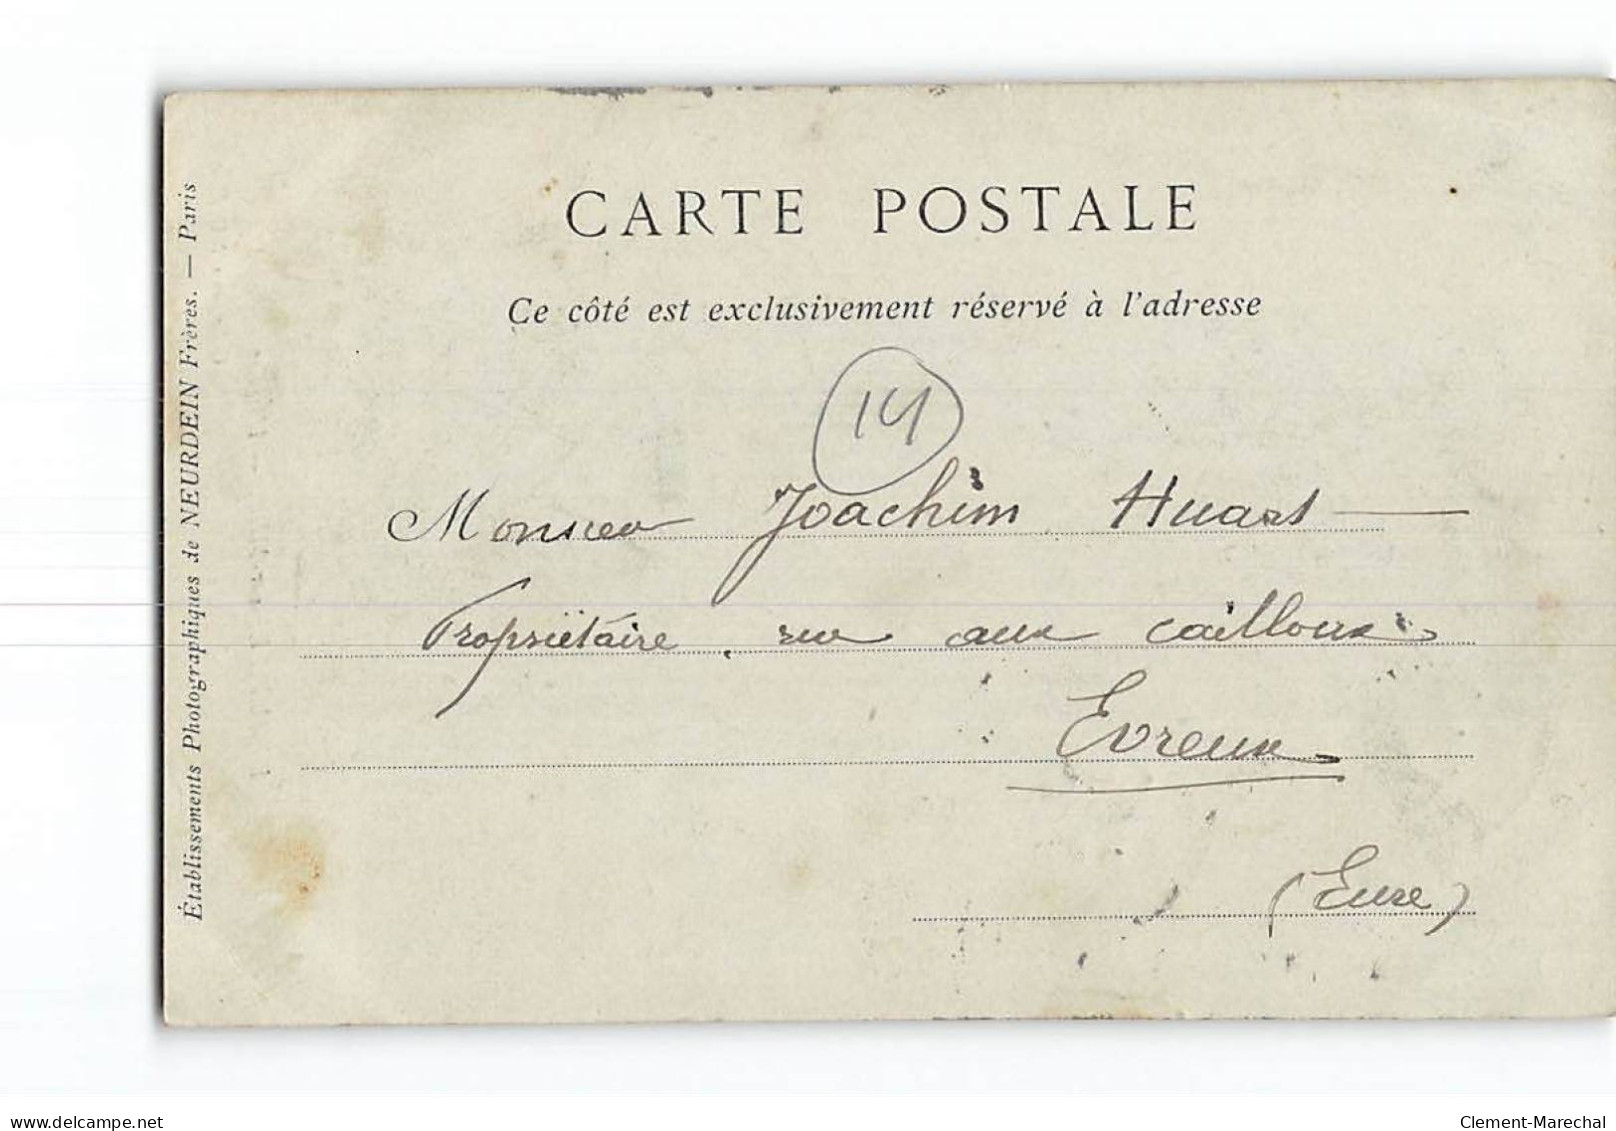 CARTE POSTALE
Ce côté est exclusivement réservé à l'adresse
14
Monsieur Joachim Huart
Propriétaire, rue aux cailloux
Evreux
(Eure)
Établissements Photographiques de NEURDEIN Frères. — Paris
delcampe.net
Clement-Marechal